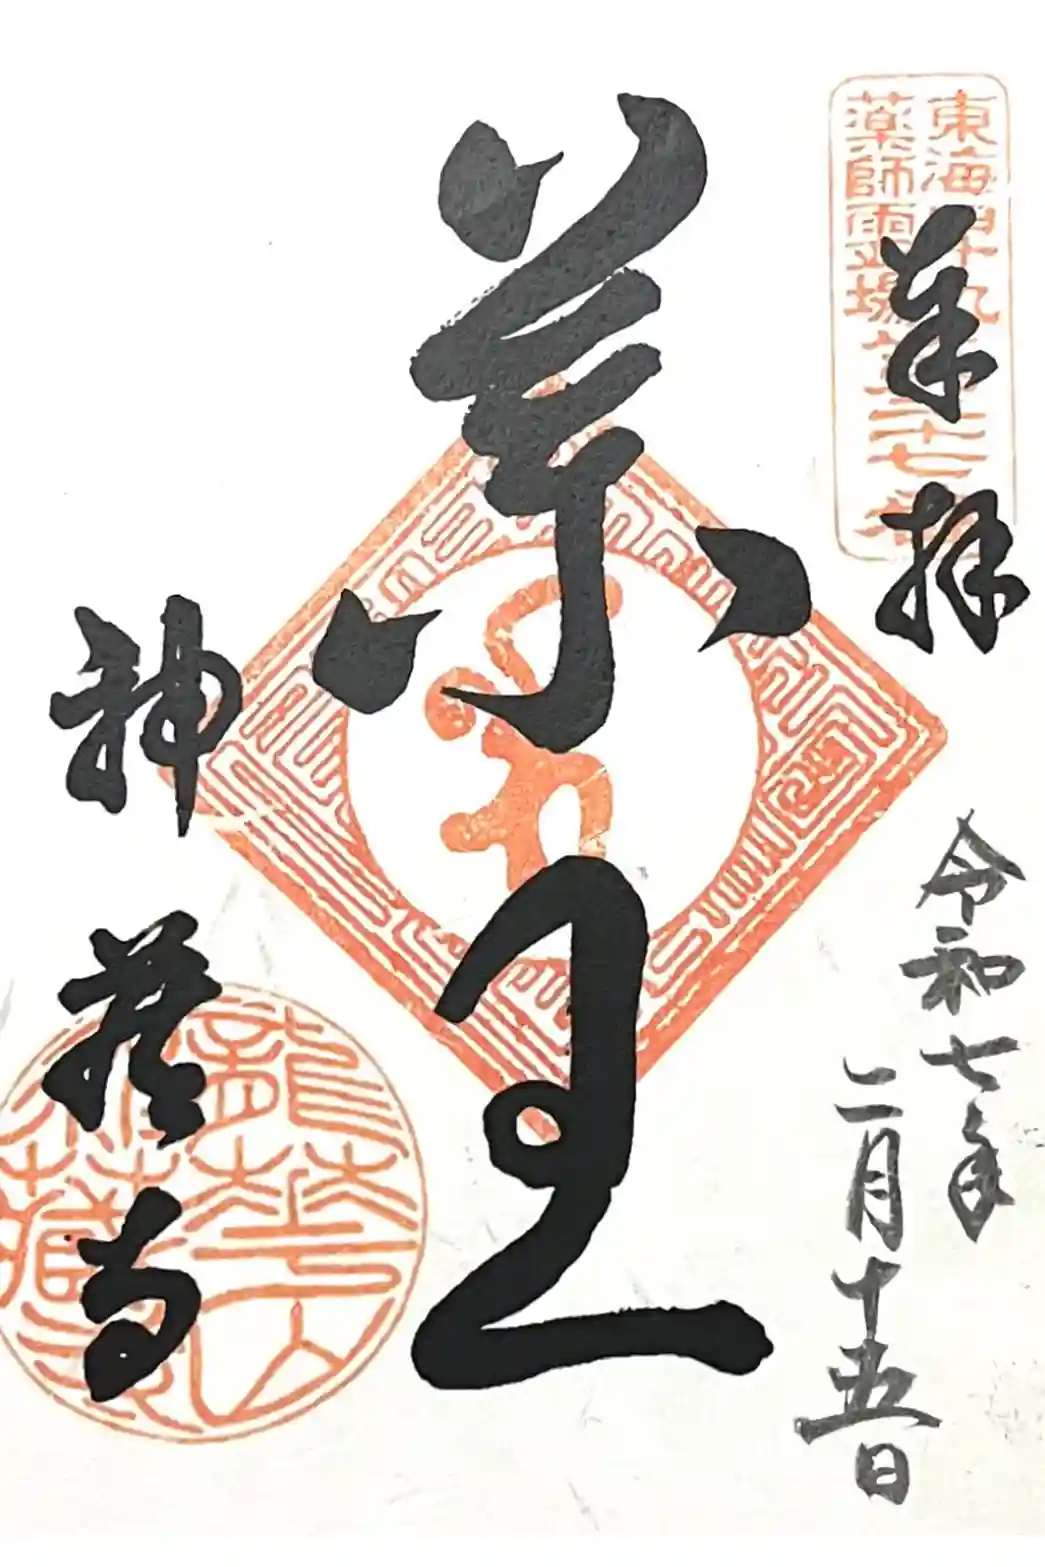 東海四十九
薬師霊場
第二十七番
奉拝
令和七年
二月十五日
薬王
神蔵寺
龍華山
神藏寺